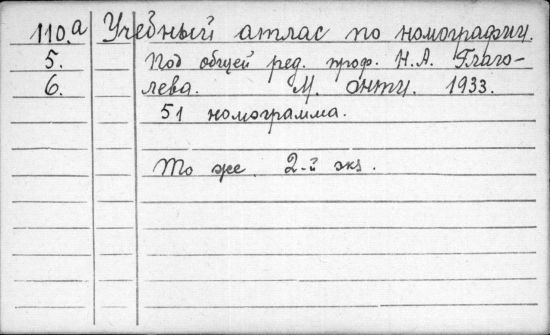 110.а Учебный атлас по номографии.
5. Под общей ред. проф. Н.А. Глаго-
6. лева. М. ОНТИ. 1933.
51 номограмма.
То же. 2-й экз.